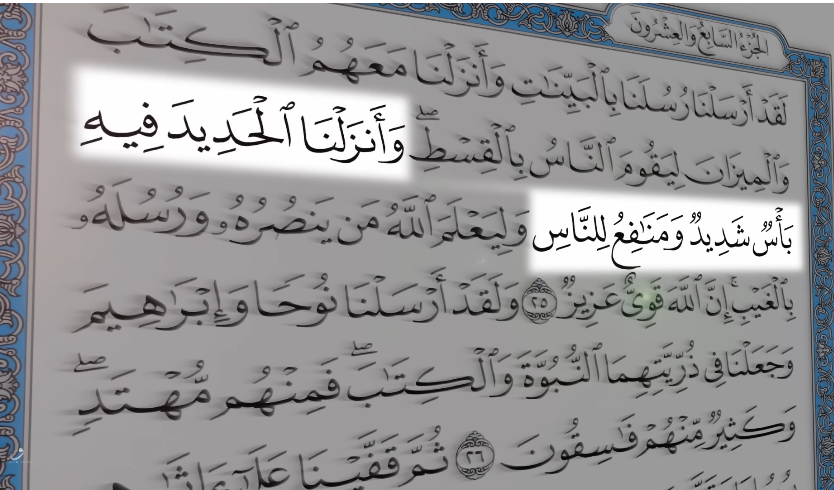 الجُزْءُ السَّابِعُ وَالْعِشْرُونَ
لَقَدْ أَرْسَلْنَا رُسُلَنَا بِالْبَيِّنَٰتِ وَأَنزَلْنَا مَعَهُمُ ٱلْكِتَٰبَ
وَٱلْمِيزَانَ لِيَقُومَ ٱلنَّاسُ بِٱلْقِسْطِۖ وَأَنزَلْنَا ٱلْحَدِيدَ فِيهِ
بَأْسٌ شَدِيدٌ وَمَنَٰفِعُ لِلنَّاسِ وَلِيَعْلَمَ ٱللَّهُ مَن يَنصُرُهُۥ وَرُسُلَهُۥ
بِٱلْغَيْبِۚ إِنَّ ٱللَّهَ قَوِيٌّ عَزِيزٌ ٢٥ وَلَقَدْ أَرْسَلْنَا نُوحًا وَإِبْرَٰهِيمَ
وَجَعَلْنَا فِي ذُرِّيَّتِهِمَا ٱلنُّبُوَّةَ وَٱلْكِتَٰبَۖ فَمِنْهُم مُّهْتَدٍۖ
وَكَثِيرٌ مِّنْهُمْ فَٰسِقُونَ ٢٦ ثُمَّ قَفَّيْنَا عَلَىٰٓ ءَاثَٰرِهِم